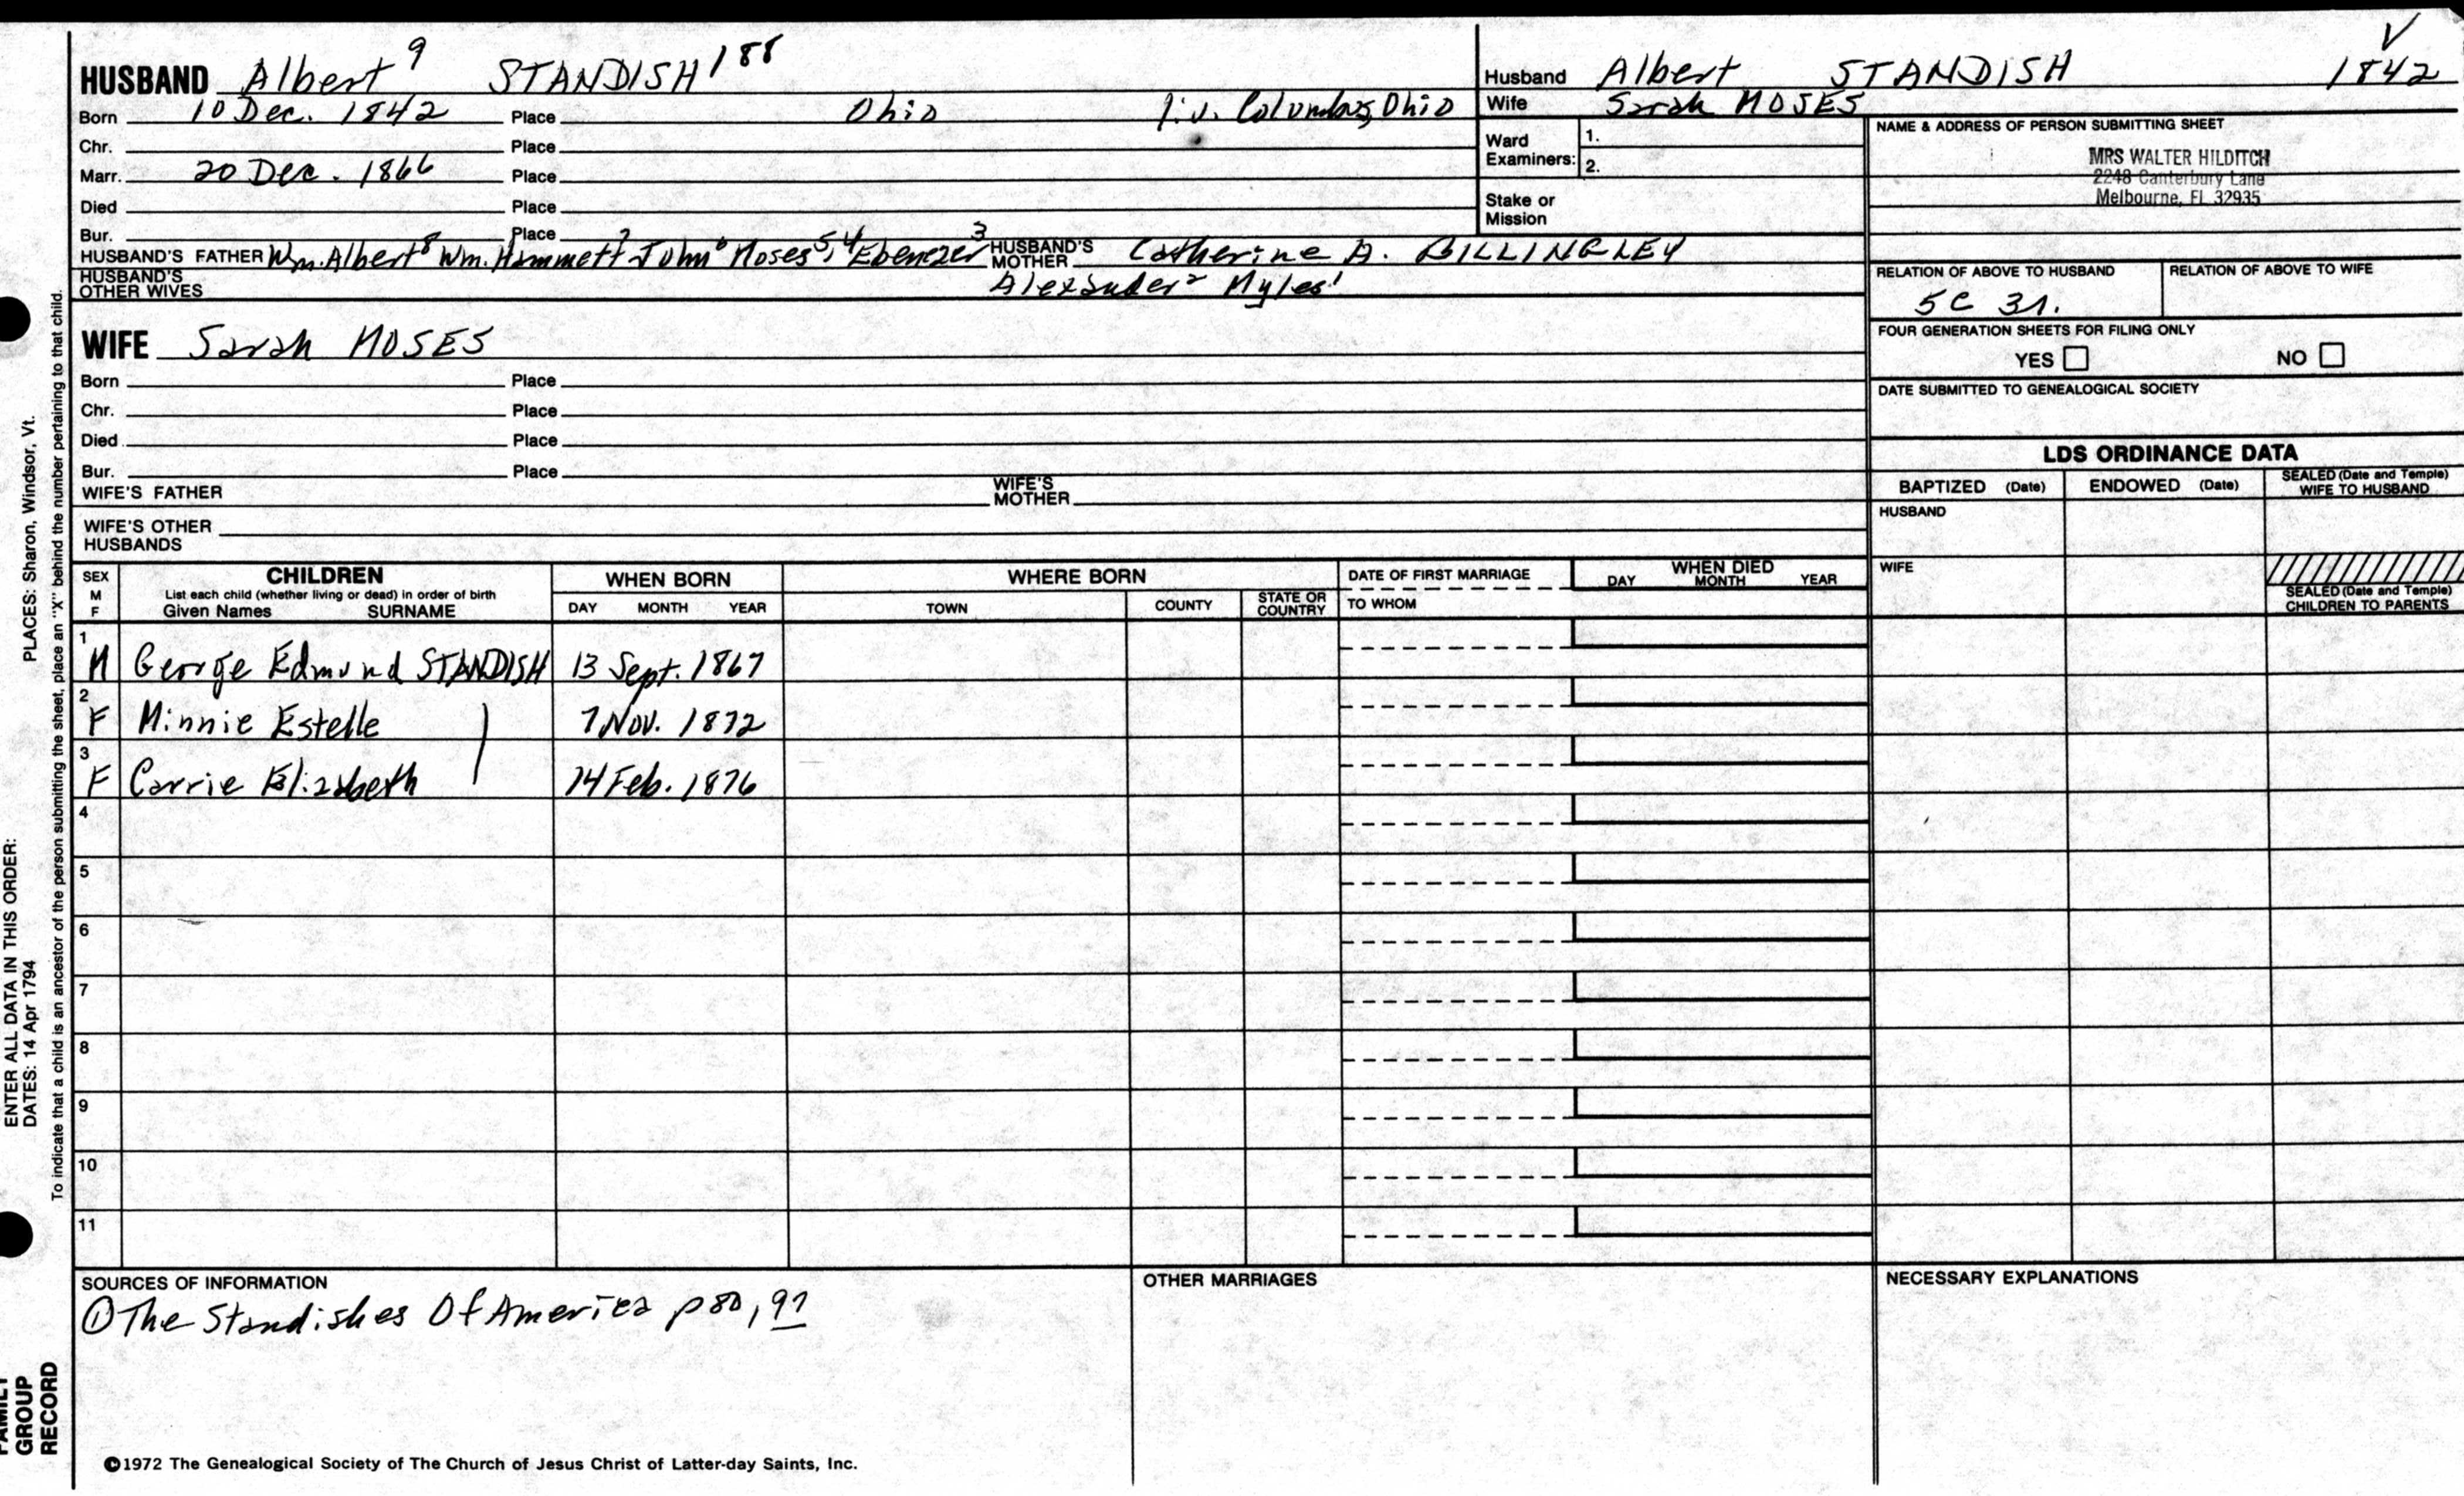 HUSBAND Albert⁹ STANDISH¹⁸⁸
Born 10 Dec. 1842 Place Ohio liv. Columbus, Ohio
Chr. Place
Marr. 20 Dec. 1866 Place
Died Place
Bur. Place
HUSBAND'S FATHER Wm. Albert⁸ Wm. Hammett⁷ John⁶ Moses⁵,⁴ Ebenezer³ HUSBAND'S MOTHER Catherine A. BILLINGLEY
HUSBAND'S OTHER WIVES Alexander² Myles¹
WIFE Sarah MOSES
Born Place
Chr. Place
Died Place
Bur. Place
WIFE'S FATHER WIFE'S MOTHER
WIFE'S OTHER HUSBANDS
Husband Albert STANDISH 1842
Wife Sarah MOSES
Ward Examiners: 1.
2.
Stake or Mission
NAME & ADDRESS OF PERSON SUBMITTING SHEET
MRS WALTER HILDITCH
2248 Canterbury Lane
Melbourne, FL 32935
RELATION OF ABOVE TO HUSBAND RELATION OF ABOVE TO WIFE
5C 3r.
FOUR GENERATION SHEETS FOR FILING ONLY
YES NO
DATE SUBMITTED TO GENEALOGICAL SOCIETY
LDS ORDINANCE DATA
BAPTIZED (Date) ENDOWED (Date) SEALED (Date and Temple) WIFE TO HUSBAND
HUSBAND
WIFE
SEALED (Date and Temple) CHILDREN TO PARENTS
SEX M F
CHILDREN
List each child (whether living or dead) in order of birth
Given Names SURNAME
WHEN BORN
DAY MONTH YEAR
WHERE BORN
TOWN COUNTY STATE OR COUNTRY
DATE OF FIRST MARRIAGE
TO WHOM
WHEN DIED
DAY MONTH YEAR
1 M George Edmund STANDISH 13 Sept. 1867
2 F Minnie Estelle 7 Nov. 1872
3 F Carrie Elizabeth 14 Feb. 1876
4
5
6
7
8
9
10
11
SOURCES OF INFORMATION
① The Standishes Of America p 80, 97
OTHER MARRIAGES
NECESSARY EXPLANATIONS
©1972 The Genealogical Society of The Church of Jesus Christ of Latter-day Saints, Inc.
ENTER ALL DATA IN THIS ORDER:
DATES: 14 Apr 1794 PLACES: Sharon, Windsor, Vt.
To indicate that a child is an ancestor of the person submitting the sheet, place an "X" behind the number pertaining to that child.
FAMILY
GROUP
RECORD